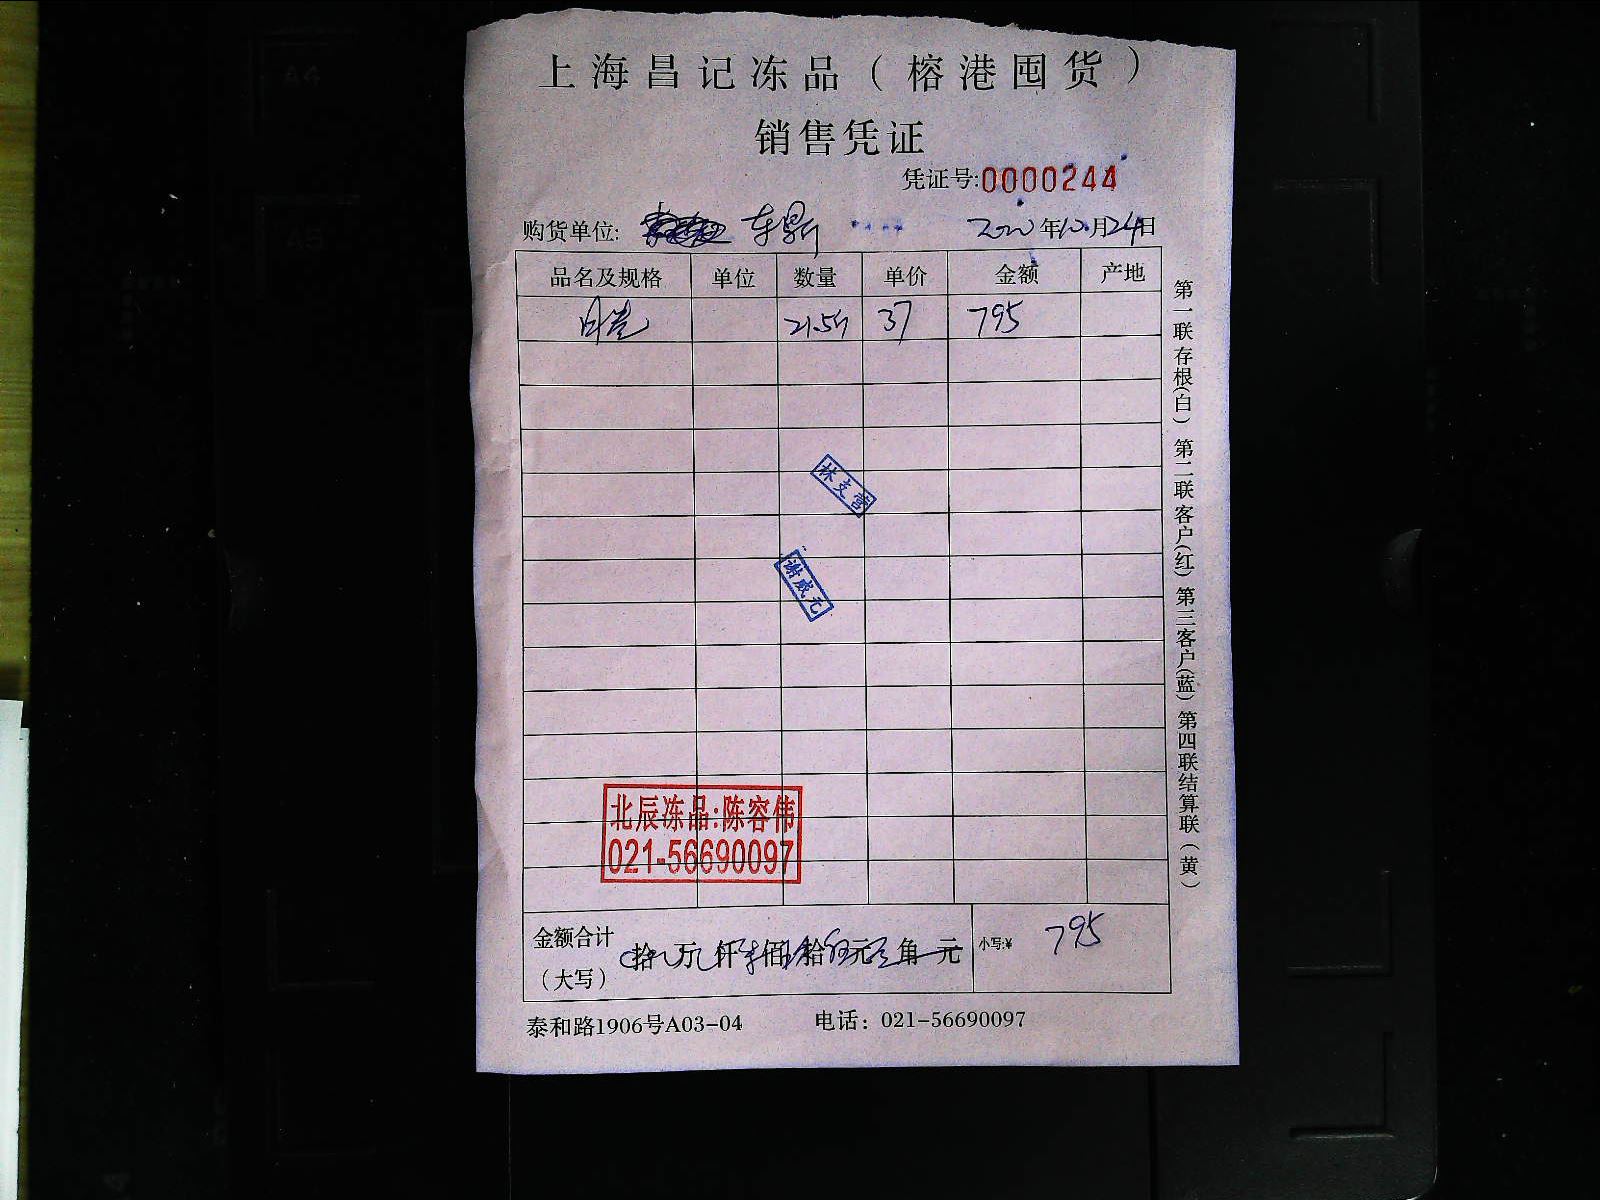 上海昌记冻品（榕港囤货）
销售凭证
凭证号:0000244
购货单位: 东
2020年10月24日
品名及规格 单位 数量 单价 金额 产地
21.5斤 37 795
林支营
谢威元
北辰冻品:陈容伟
021-56690097
金额合计（大写） 拾 万 仟 佰 拾 元 角 元 小写:¥ 795
泰和路1906号A03-04 电话：021-56690097
第一联存根(白) 第二联客户(红) 第三客户(蓝) 第四联结算联(黄)
A4
A5